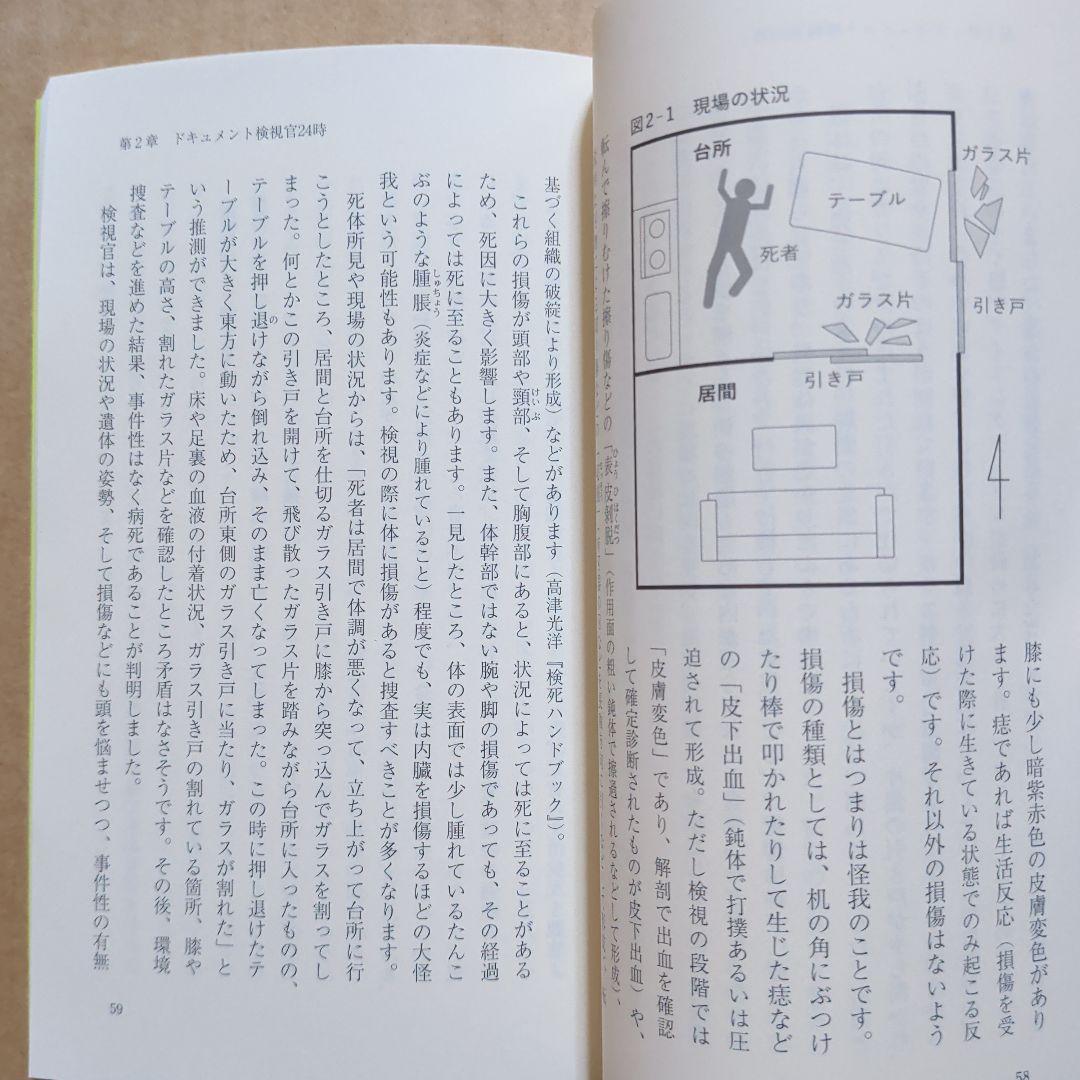 図2-1 現場の状況
台所
テーブル
ガラス片
死者
ガラス片
引き戸
引き戸
居間
膝にも少し暗紫赤色の皮膚変色があり
ます。痣であれば生活反応（損傷を受
けた際に生きている状態でのみ起こる反
応）です。それ以外の損傷はないよう
です。
損傷とはつまりは怪我のことです。
損傷の種類としては、机の角にぶつけ
たり棒で叩かれたりして生じた痣など
の「皮下出血」（鈍体で打撲あるいは圧
迫されて形成。ただし検視の段階では
「皮膚変色」であり、解剖で出血を確認
して確定診断されたものが皮下出血）や、
転んで擦りむけた擦り傷などの「表皮剝脱」（作用面の粗い鈍体で擦過されるなどして形成）、
58
第2章 ドキュメント検視官24時
基づく組織の破綻により形成）などがあります（高津光洋『検死ハンドブック』）。
これらの損傷が頭部や頸部、そして胸腹部にあると、状況によっては死に至ることがある
ため、死因に大きく影響します。また、体幹部ではない腕や脚の損傷であっても、その経過
によっては死に至ることもあります。一見したところ、体の表面では少し腫れているたんこ
ぶのような腫脹（炎症などにより腫れていること）程度でも、実は内臓を損傷するほどの大怪
我という可能性もあります。検視の際に体に損傷があると捜査すべきことが多くなります。
死体所見や現場の状況からは、「死者は居間で体調が悪くなって、立ち上がって台所に行
こうとしたところ、居間と台所を仕切るガラス引き戸に膝から突っ込んでガラスを割ってし
まった。何とかこの引き戸を開けて、飛び散ったガラス片を踏みながら台所に入ったものの、
テーブルを押し退けながら倒れ込み、そのまま亡くなってしまった。この時に押し退けたテ
ーブルが大きく東方に動いたため、台所東側のガラス引き戸に当たり、ガラスが割れた」と
いう推測ができました。床や足裏の血液の付着状況、ガラス引き戸の割れている箇所、膝や
テーブルの高さ、割れたガラス片などを確認したところ矛盾はなさそうです。その後、環境
捜査などを進めた結果、事件性はなく病死であることが判明しました。
検視官は、現場の状況や遺体の姿勢、そして損傷などにも頭を悩ませつつ、事件性の有無
59